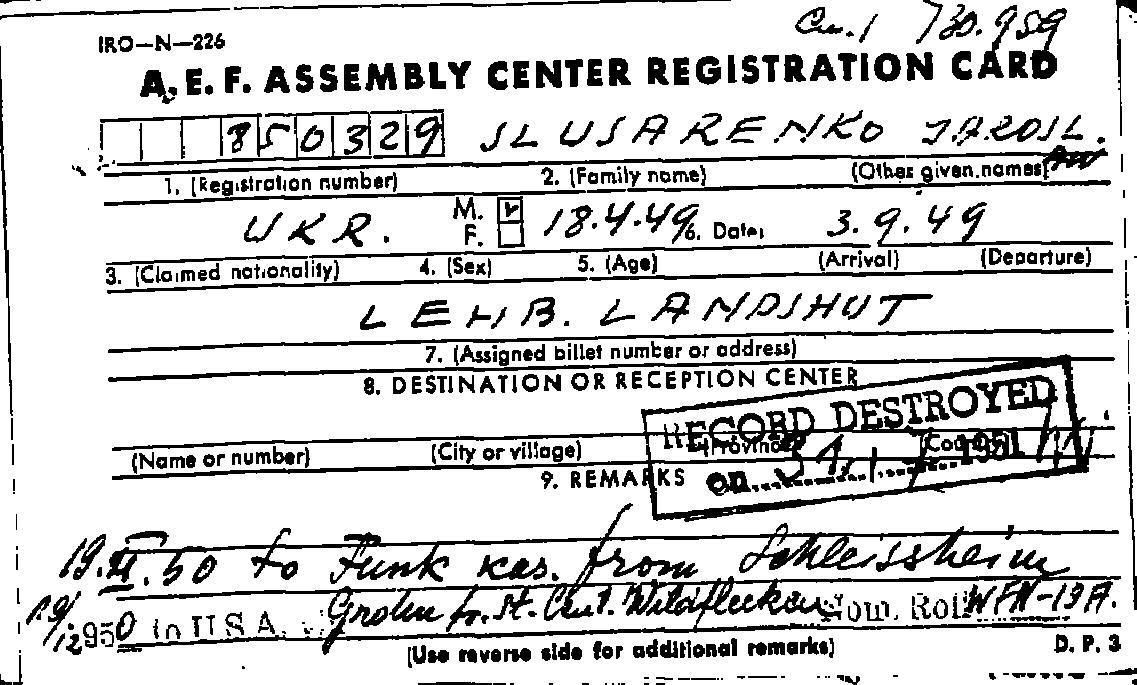 IRO—N—226 730.959
A. E. F. ASSEMBLY CENTER REGISTRATION CARD
850329 SLUSARENKO JAROSL.
1. (Registration number) 2. (Family name) (Other given names)
UKR. M. F. 18.4.49 6. Date: 3.9.49
3. (Claimed nationality) 4. (Sex) 5. (Age) (Arrival) (Departure)
LEHB. LANDSHUT
7. (Assigned billet number or address)
8. DESTINATION OR RECEPTION CENTER
RECORD DESTROYED
(Name or number) (City or village) (Province) (Country)
on 1951
9. REMARKS
19.XI.50 to Funk kas. from Schleissheim
19/12 950 to U.S.A. v. Grohn fr. St. Cent. Wildflecken Nom. Roll WFN-19A.
(Use reverse side for additional remarks) D. P. 3